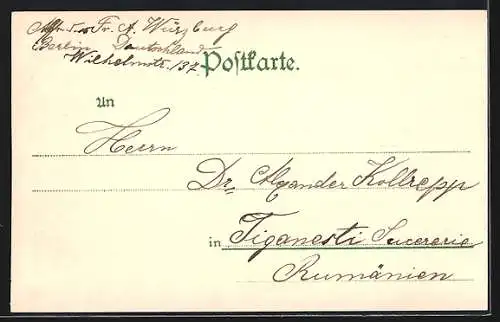 Fr. A. Würzburg
Berlin Deutschland
Wilhelmstr. 137.
Postkarte.
An
Herrn
Dr. Alexander Kollrepp
in Tiganesti Sucrerie
Rumänien